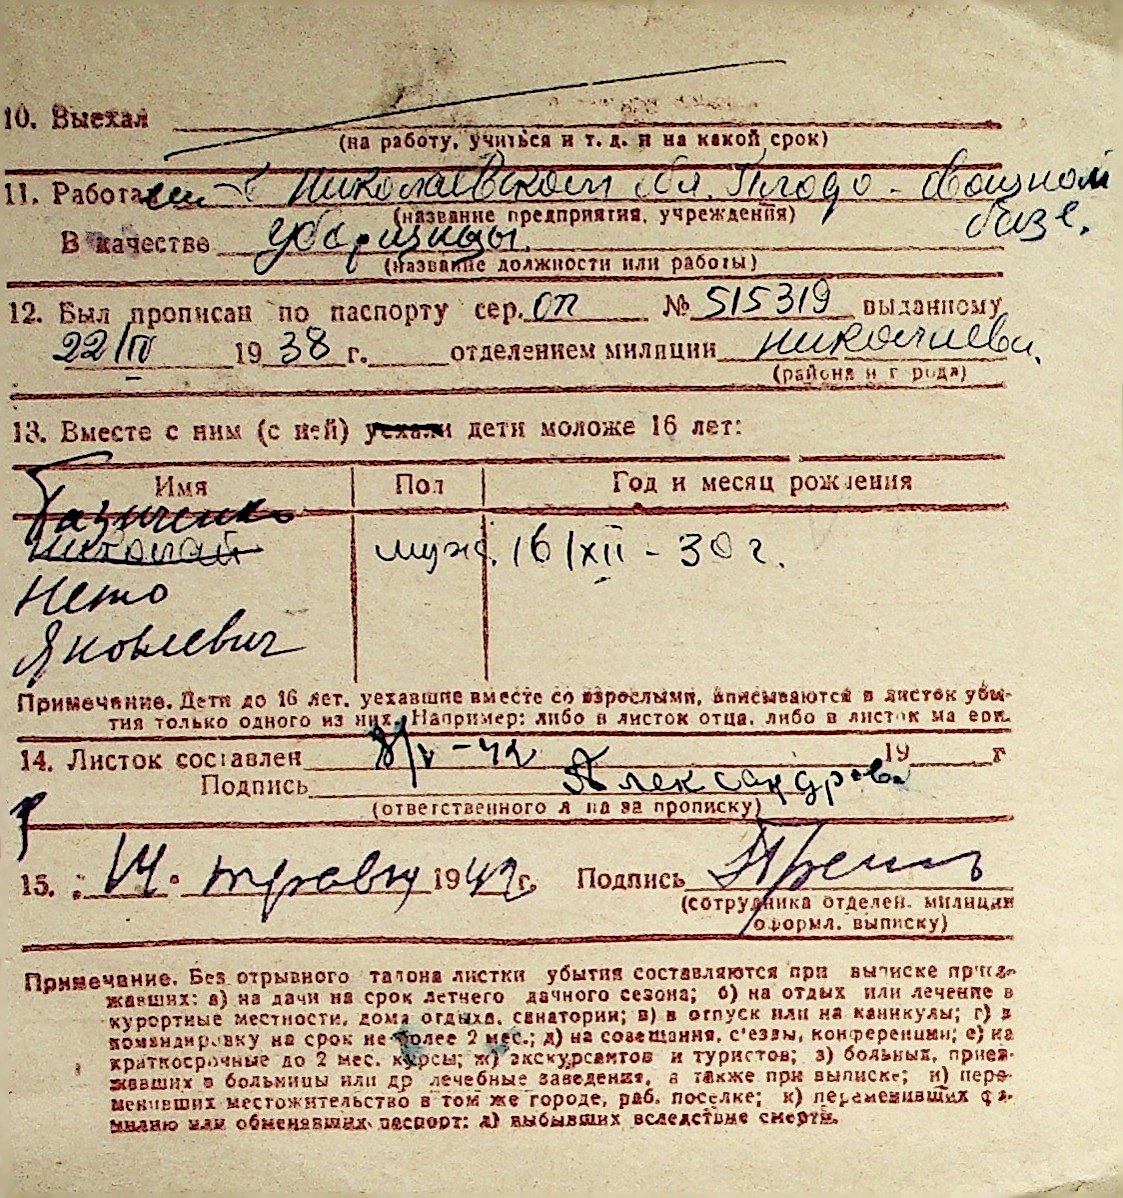 10. Выехал
(на работу, учиться и т. д. и на какой срок)
11. Работа в Николаевском обл. Плодо-овощном
(название предприятия, учреждения) базе.
В качестве уборщицы.
(название должности или работы)
12. Был прописан по паспорту сер. ОП № 515319 выданному
22/IV 1938 г. отделением милиции Николаев
(района и города)
13. Вместе с ним (с ней) уехали дети моложе 16 лет:
Имя Пол Год и месяц рождения
Николай муж. 16/XII-30 г.
Яковлевич
Примечание. Дети до 16 лет, уехавшие вместе со взрослыми, вписываются в листок убы-
тия только одного из них. Например: либо в листок отца, либо в листок матери.
14. Листок составлен 8/V-42 19 г
Подпись Александрова
(ответственного лица за прописку)
15. 14. травня 1942 г. Подпись
(сотрудника отделен. милиции
оформл. выписку)
Примечание. Без отрывного талона листки убытия составляются при выписке приез-
жавших: а) на дачи на срок летнего дачного сезона; б) на отдых или лечение в
курортные местности, дома отдыха, санатории; в) в отпуск или на каникулы; г) в
командировку на срок не более 2 мес.; д) на совещания, с'езды, конференции; е) на
краткосрочные до 2 мес. курсы; ж) экскурсантов и туристов; з) больных, приез-
жавших в больницы или др лечебные заведения, а также при выписке; и) пере-
менивших местожительство в том же городе, раб. поселке; к) переменивших фа-
милию или обменявших паспорт; л) выбывших вследствие смерти.